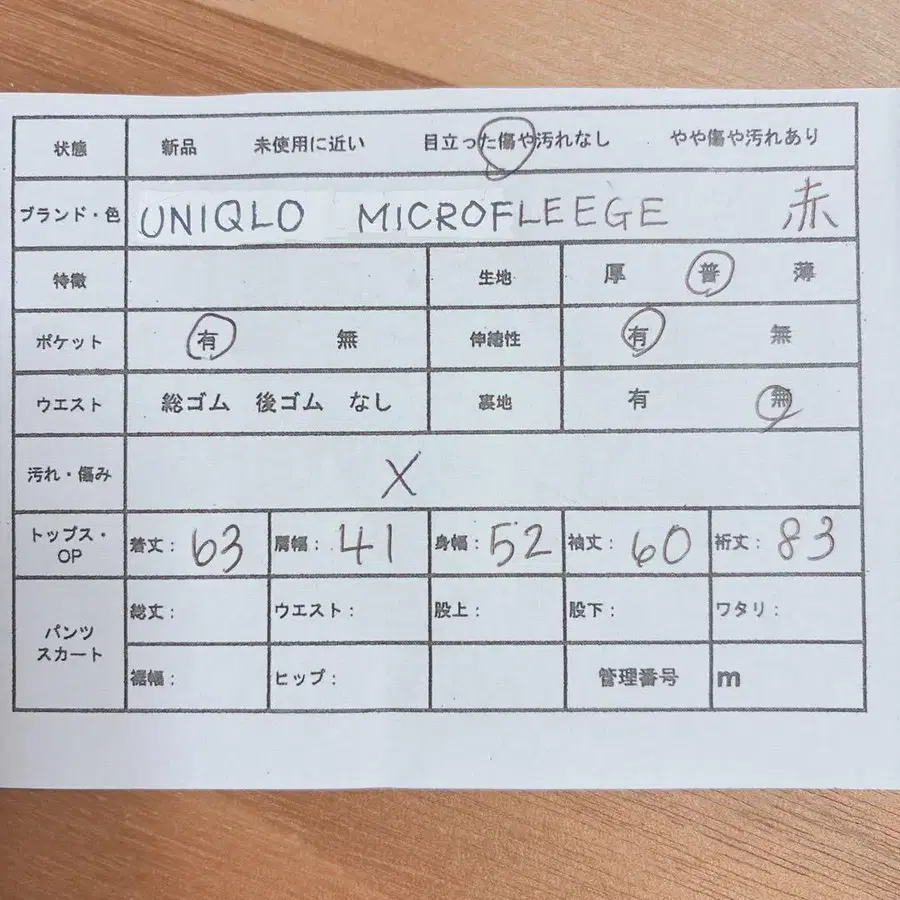 状態 新品 未使用に近い 目立った傷や汚れなし やや傷や汚れあり
ブランド・色 UNIQLO MICROFLEEGE 赤
特徴 生地 厚 普 薄
ポケット 有 無 伸縮性 有 無
ウエスト 総ゴム 後ゴム なし 裏地 有 無
汚れ・傷み X
トップス・OP 着丈: 63 肩幅: 41 身幅: 52 袖丈: 60 裄丈: 83
パンツ スカート 総丈: ウエスト: 股上: 股下: ワタリ:
裾幅: ヒップ: 管理番号 m